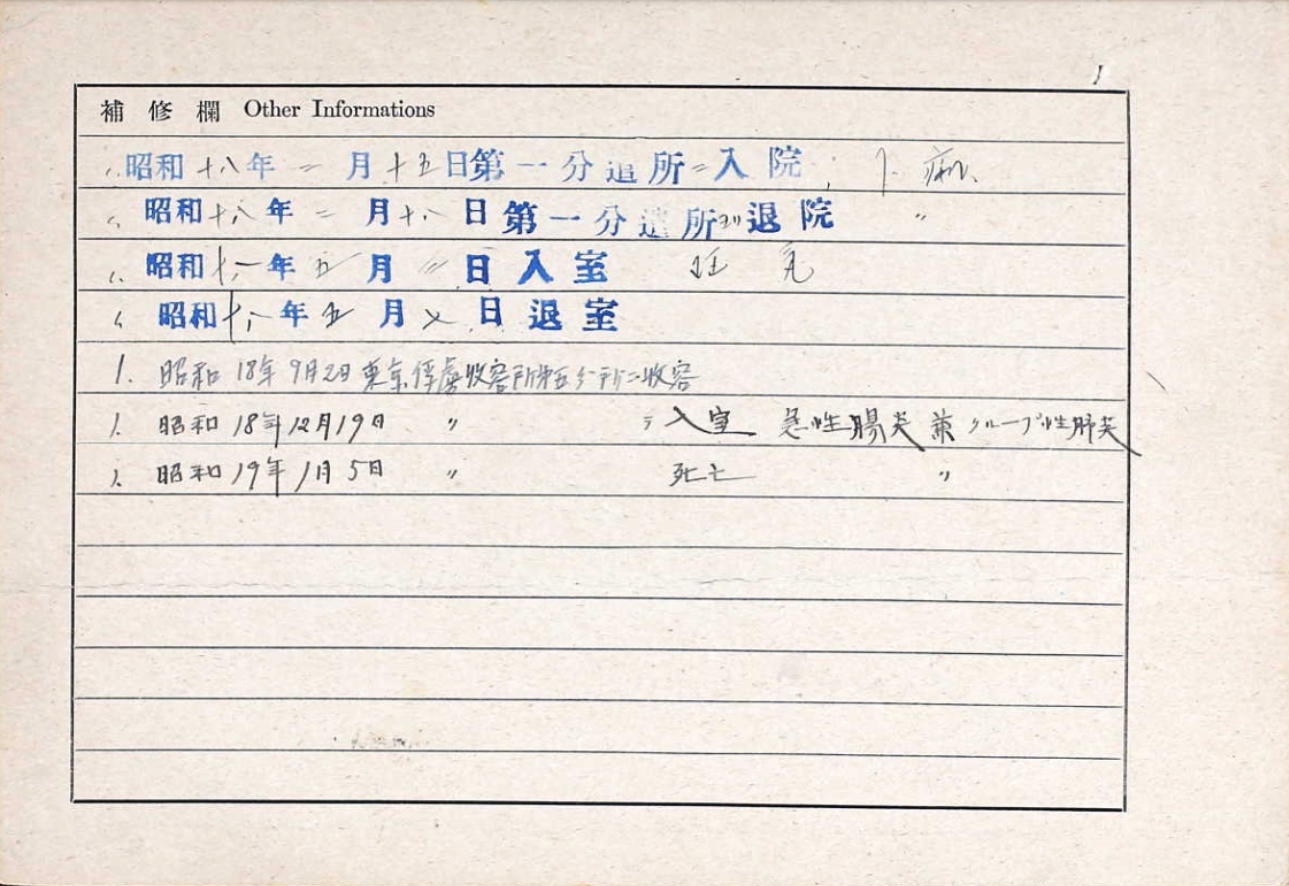 1
補修欄 Other Informations
昭和十八年二月十五日第一分遣所ニ入院
昭和十八年二月十八日第一分遣所ヨリ退院 〃
昭和十八年五月二日入室
昭和十八年五月七日退室
1. 昭和18年9月2日東京俘虜收容所第五分所ニ收容
1. 昭和18年12月19日 〃 ニ入室 急性腸炎兼クループ性肺炎
1. 昭和19年1月5日 〃 死亡 〃